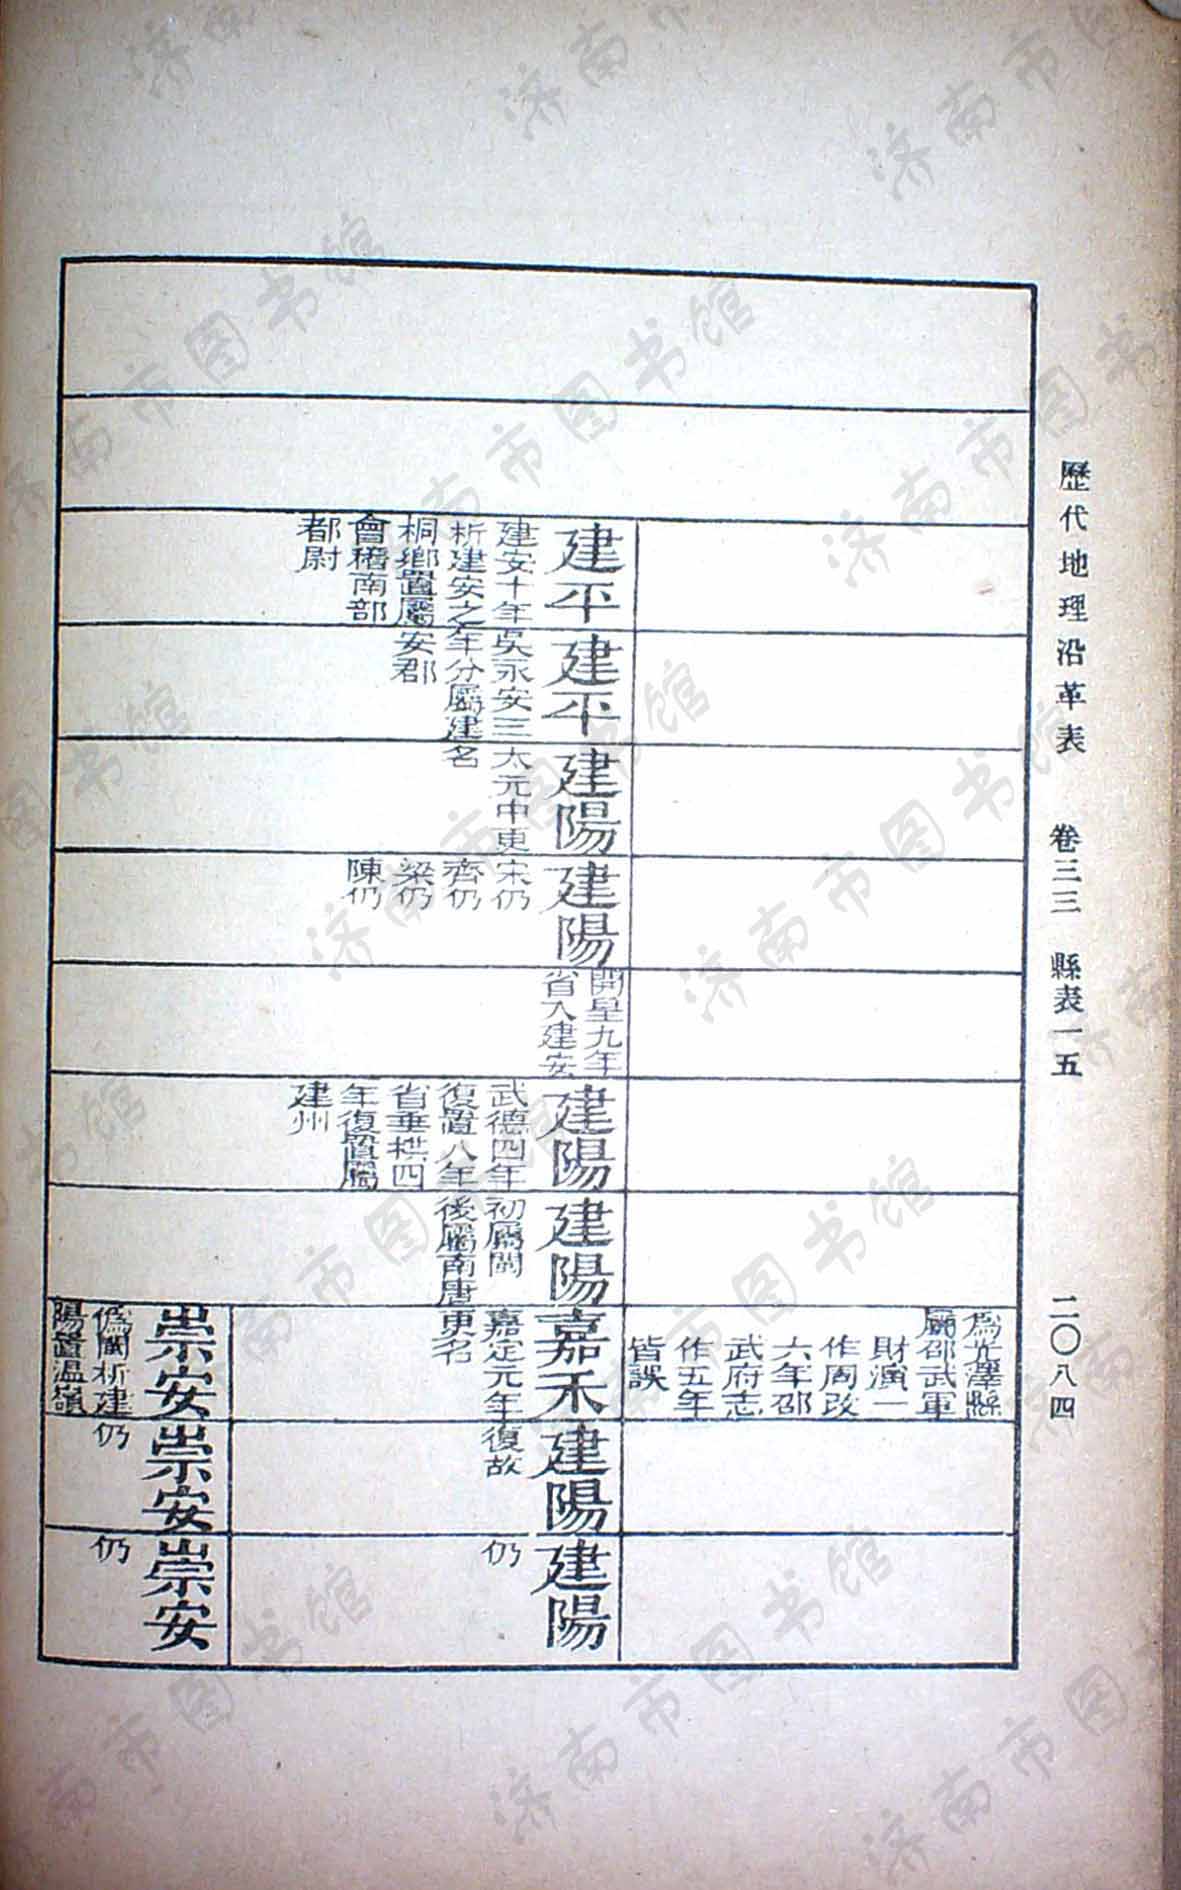 歷代地理沿革表　卷三三　縣表一五　二〇八四
爲光澤縣
屬邵武軍
財演一
作周改
六年邵
武府志
作五年
皆誤
建平
建安十年
析建安之
桐鄉置屬
會稽南部
都尉
建平
吳永安三
年分屬建
安郡
建陽
太元中更
名
建陽
宋仍
齊仍
梁仍
陳仍
開皇九年
省入建安
建陽
武德四年
復置八年
省垂拱四
年復置屬
建州
建陽
初屬閩
後屬南唐
嘉禾
嘉定元年
更名
建陽
復故
建陽
仍
崇安
僞閩析建
陽置溫嶺
崇安
仍
崇安
仍
济南市图书馆